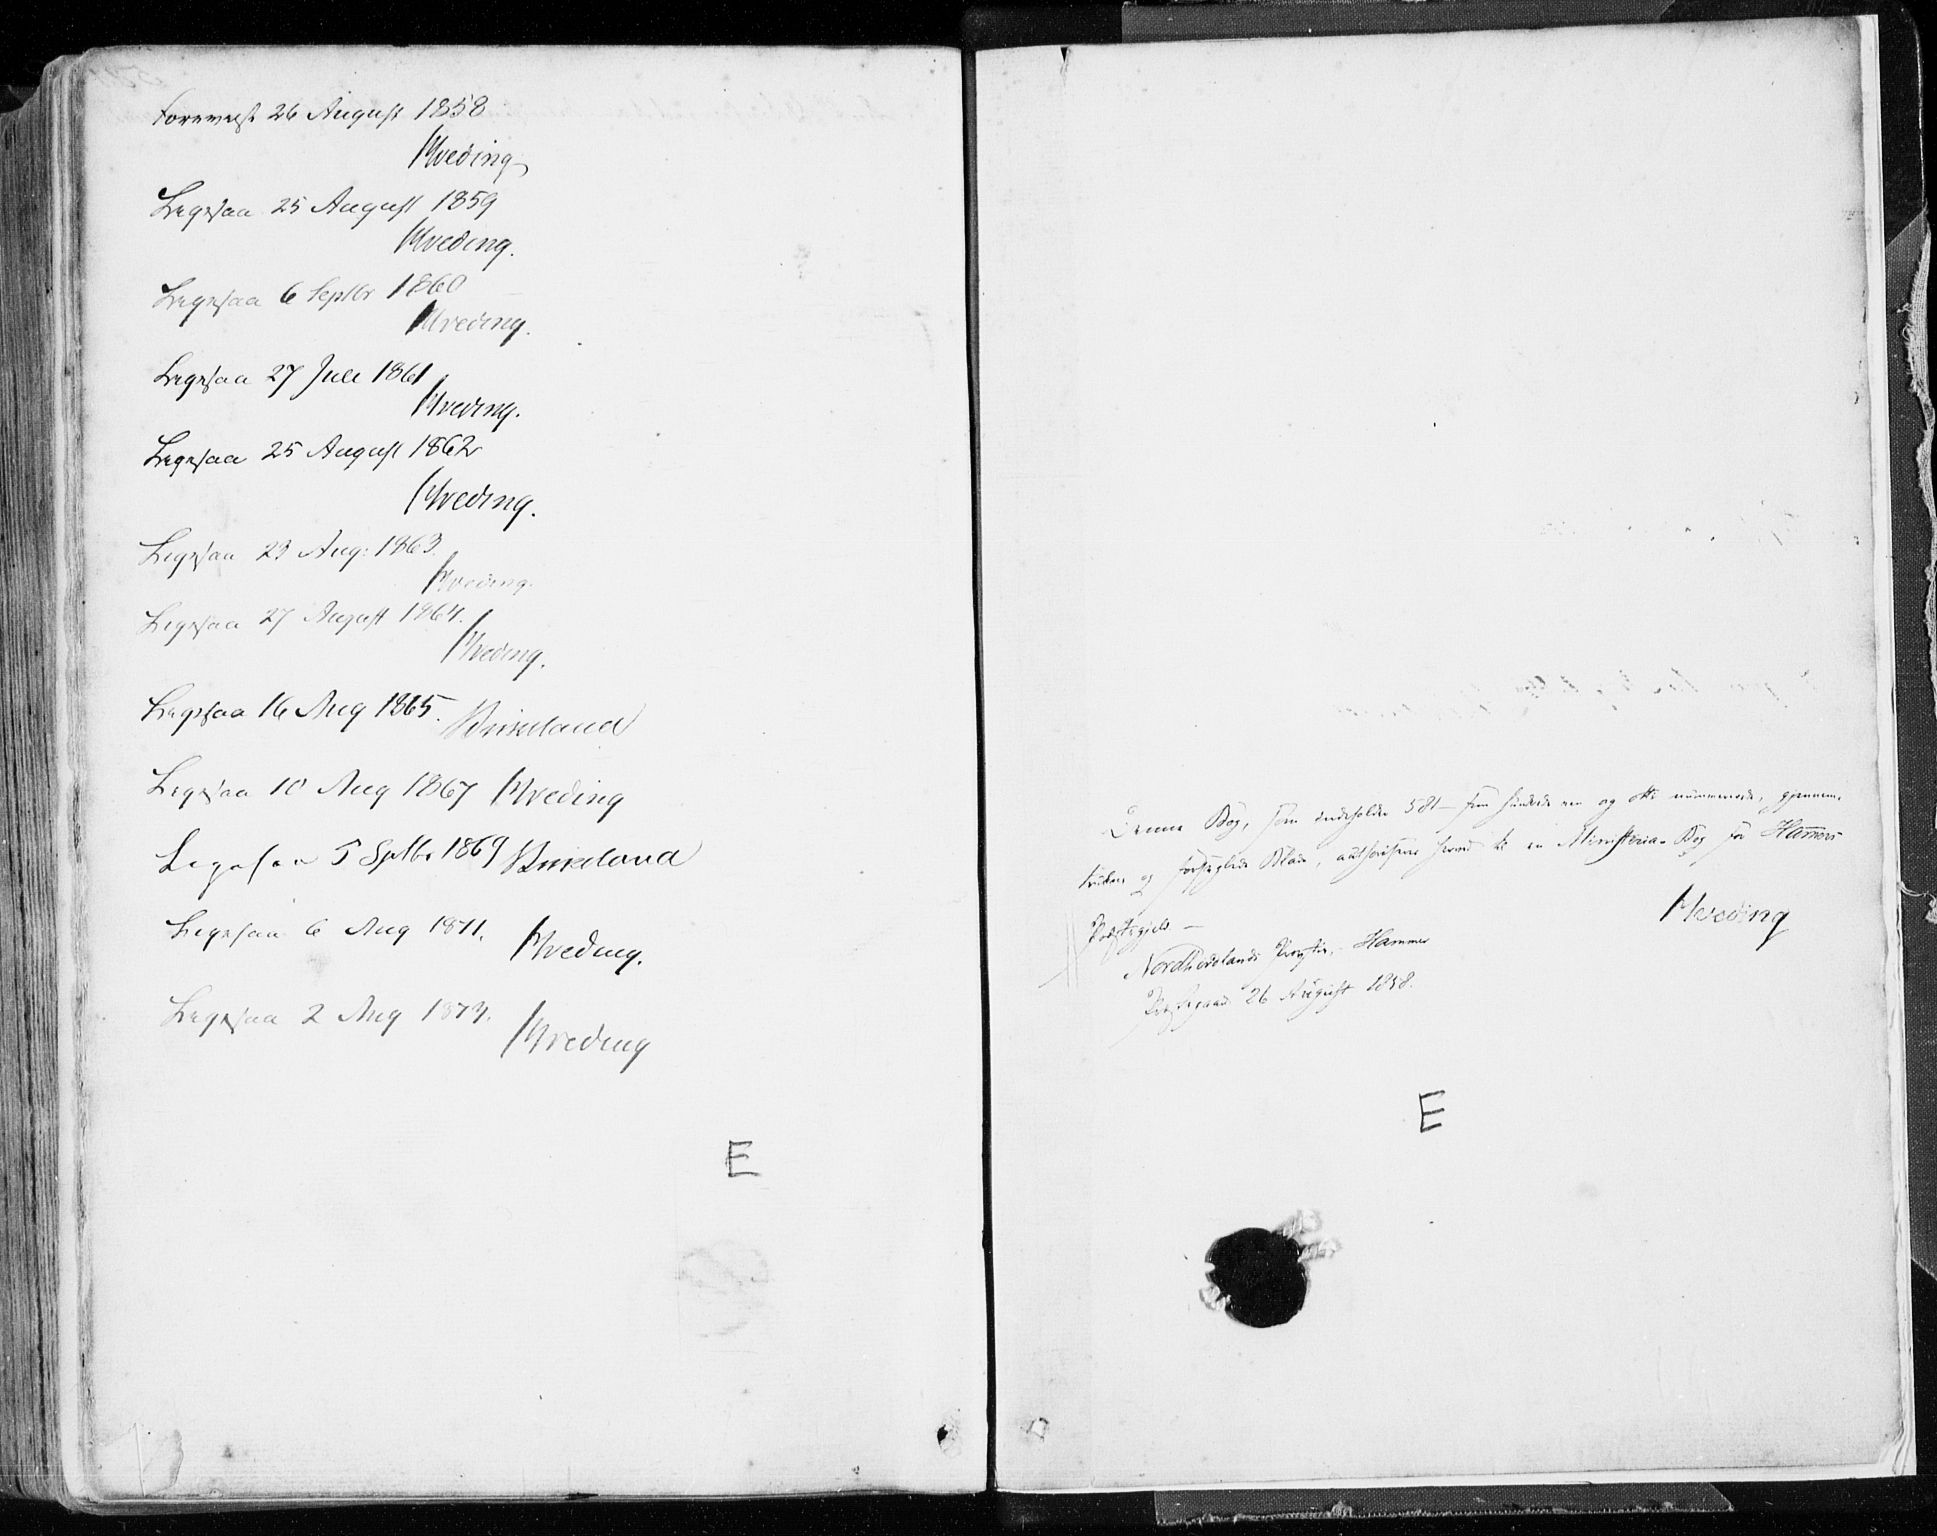 Forevist 26 August 1858
Kveding
Ligesaa 25 August 1859
Kveding.
Ligesaa 6 Septbr 1860
Kveding.
Ligesaa 27 Juli 1861
Kveding.
Ligesaa 25 August 1862
Kveding.
Ligesaa 23 Aug: 1863.
Kveding.
Ligesaa 27 August 1864.
Kveding.
Ligesaa 16 Aug 1865.
Ligesaa 10 Aug 1867 Kveding
Ligesaa 5 Sptbr 1869
Ligesaa 6 Aug 1871. Kveding.
Ligesaa 2 Aug 1873. Kveding
E
Denne Bog, som indeholder 581 – fem hundrede een og otti nummerede, gjennem-
trukne og forseglede Blade, authoriseres herved til en Ministerial-Bog for Hammers
Præstegjeld. –
Kveding
Nordhordlands Provsti, Hammer
Præstegaard 26 August 1858.
E